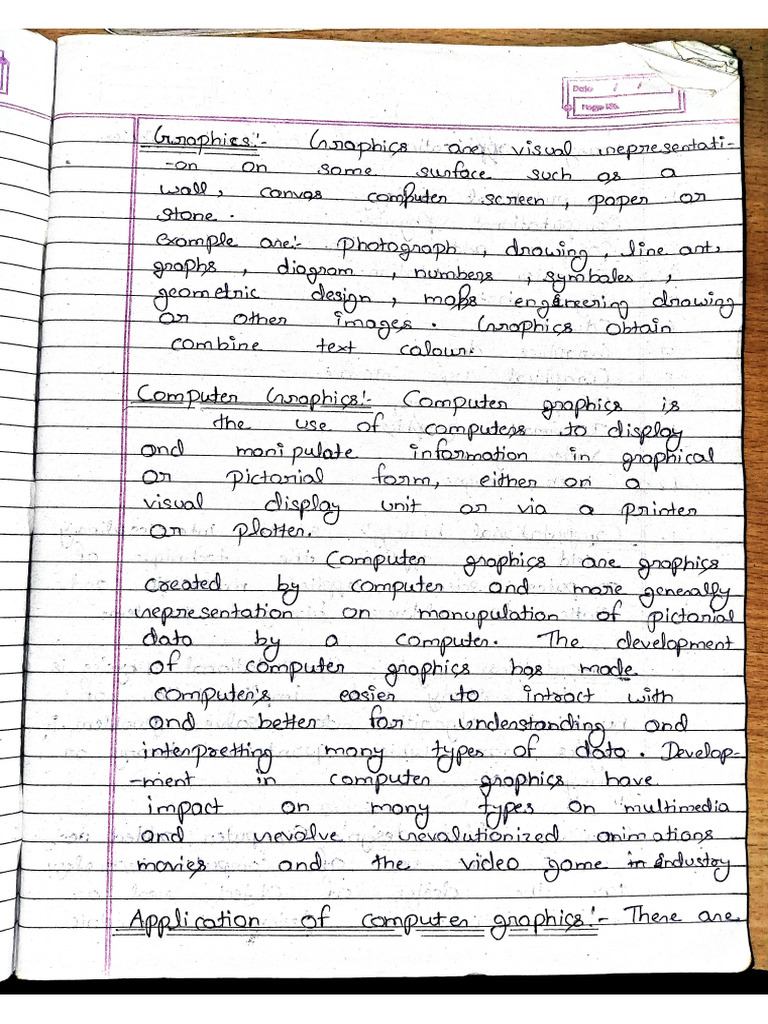 Date / /
Page No.
Graphics:- Graphics are visual representati-
-on on some surface such as a
wall, canvas computer screen, paper or
stone.
example are:- photograph, drawing, line art,
graphs, diagram, numbers, symbales,
geometric design, maps engineering drawing
or other images. Graphics obtain
combine text colour.
Computer Graphics:- Computer graphics is
the use of computers to display
and manipulate information in graphical
or pictorial form, either on a
visual display unit or via a printer
or plotter.
Computer graphics are graphics
created by computer and more generally
representation on manupulation of pictorial
data by a computer. The development
of computer graphics has made
computer's easier to intract with
and better for understanding and
interpretting many types of data. Develop-
-ment in computer graphics have
impact on many types on multimedia
and revolve revalutionized animations
movies and the video game in industry
Application of computer graphics:- There are